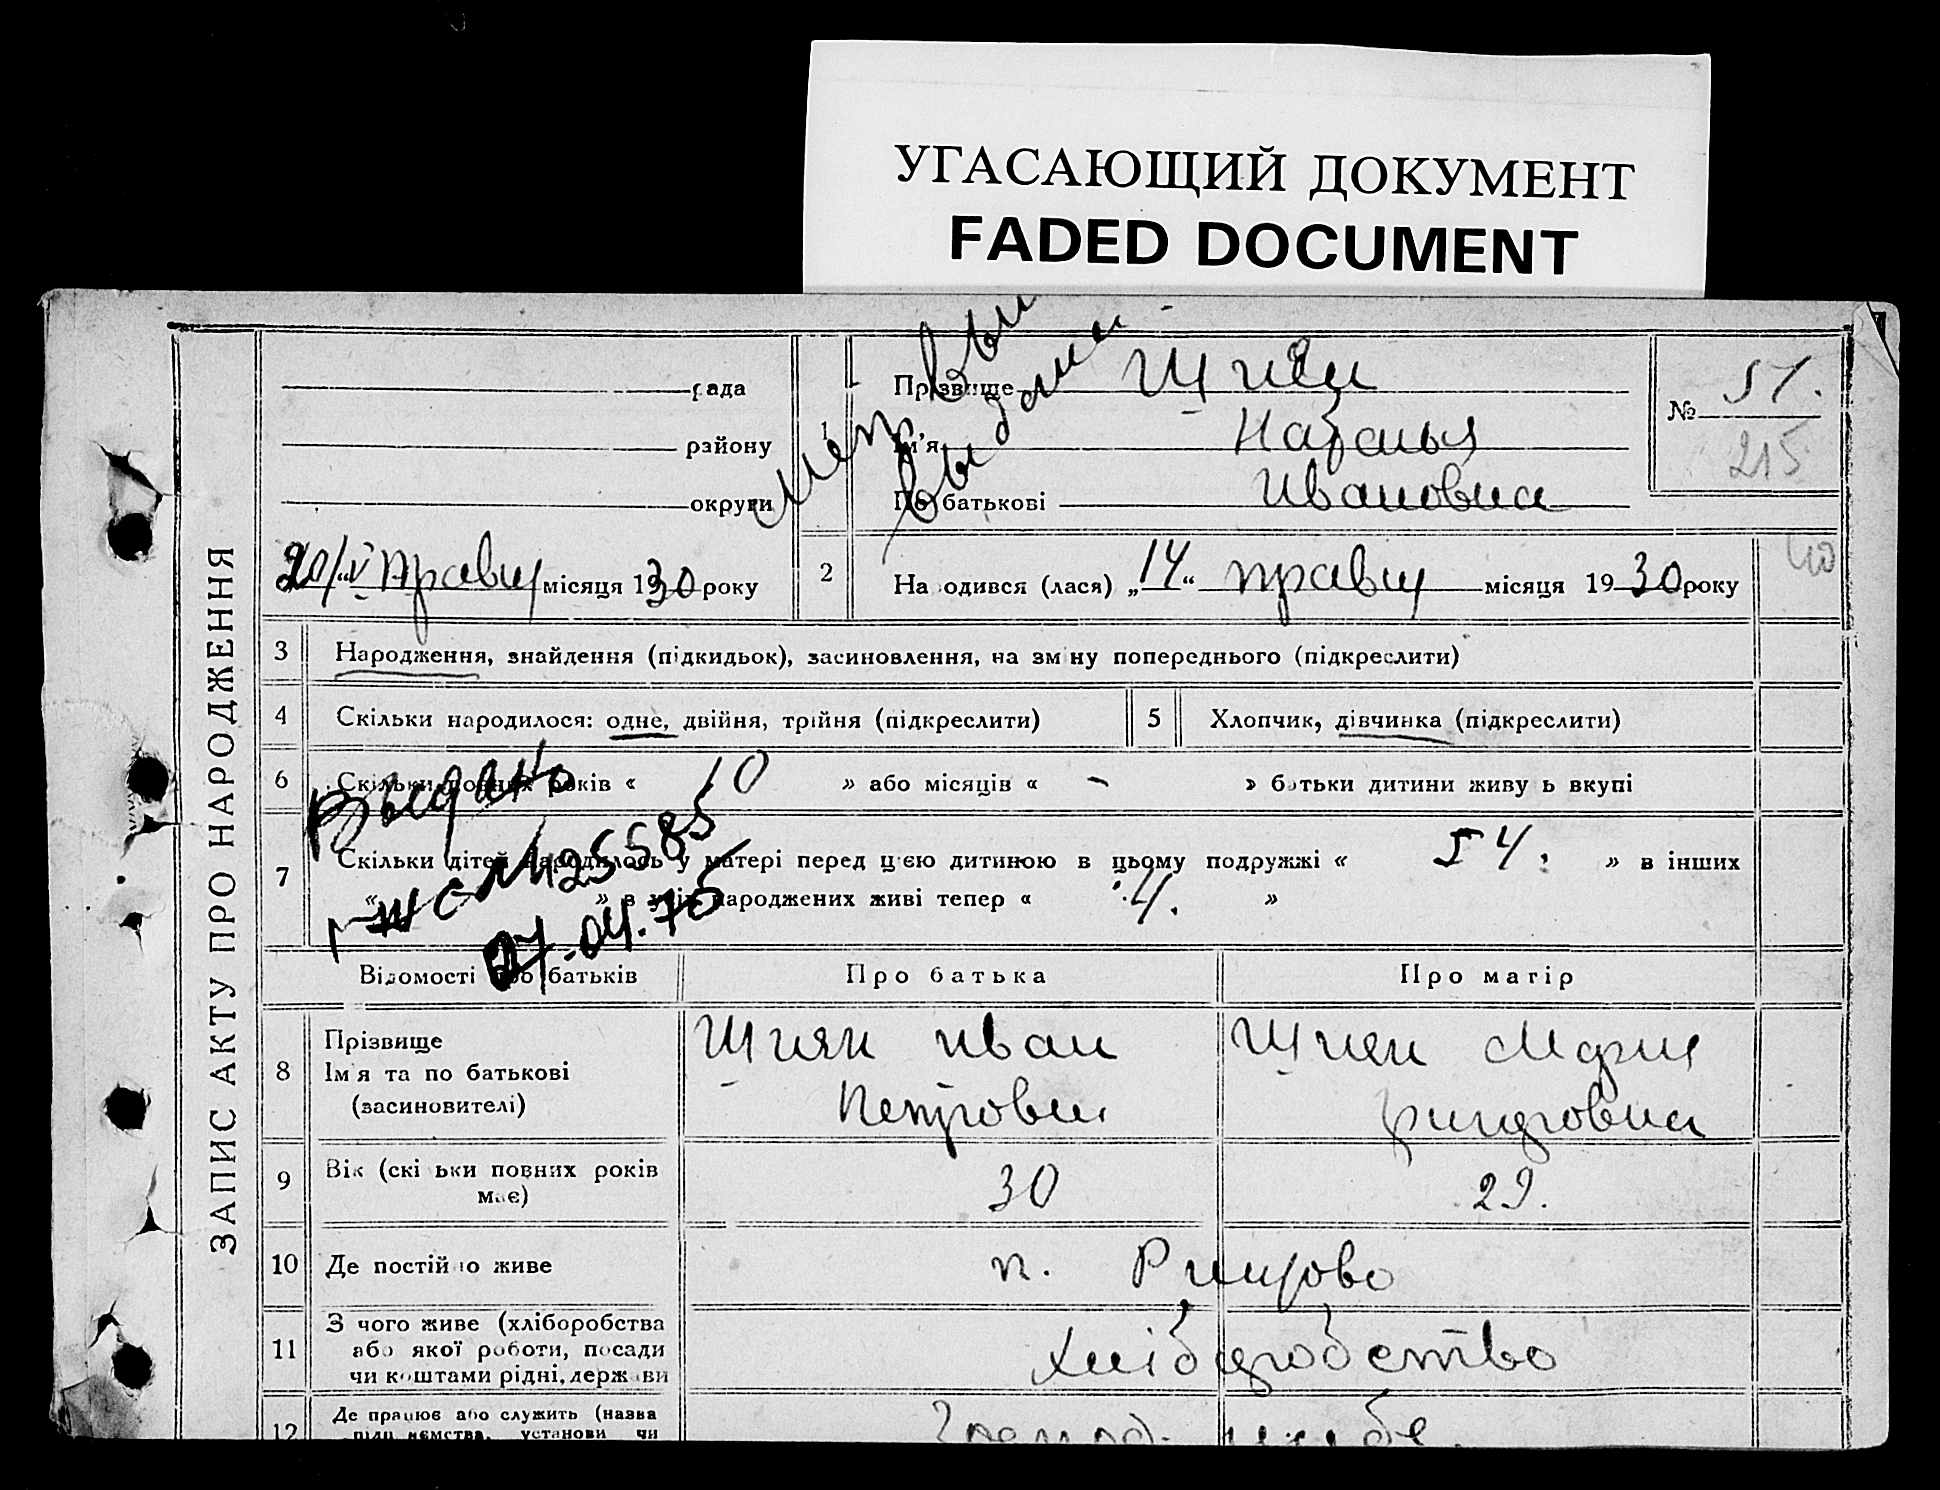 УГАСАЮЩИЙ ДОКУМЕНТ
FADED DOCUMENT
ЗАПИС АКТУ ПРО НАРОДЖЕННЯ
рада
району
округи
20/V травня місяця 1930 року
Выдано
1
Прізвище Щиян
Ім'я Наталья
По батькові Ивановна
№ 51.
215
2 Народився (лася) „14“ травня місяця 1930 року
3 Народження, знайдення (підкидьок), засиновлення, на зміну попереднього (підкреслити)
4 Скільки народилося: одне, двійня, трійня (підкреслити)
5 Хлопчик, дівчинка (підкреслити)
6 Скільки повних років « 10 » або місяців « - » батьки дитини живуть вкупі
7 Скільки дітей народилось у матері перед цією дитиною в цьому подружжі « 54. » в інших
« » в усіх народжених живі тепер « 4. »
425585
07.04.75
Відомості про батьків
Про батька
Про матір
8 Прізвище
Ім'я та по батькові
(засиновителі)
Щиян Иван
Петрович
Щиян Мария
9 Вік (скільки повних років
має)
30
29.
10 Де постійно живе
11 З чого живе (хліборобства
або якої роботи, посади
чи коштами рідні, держави
Хліборобство
12 Де працює або служить (назва
підприємства, установи чи